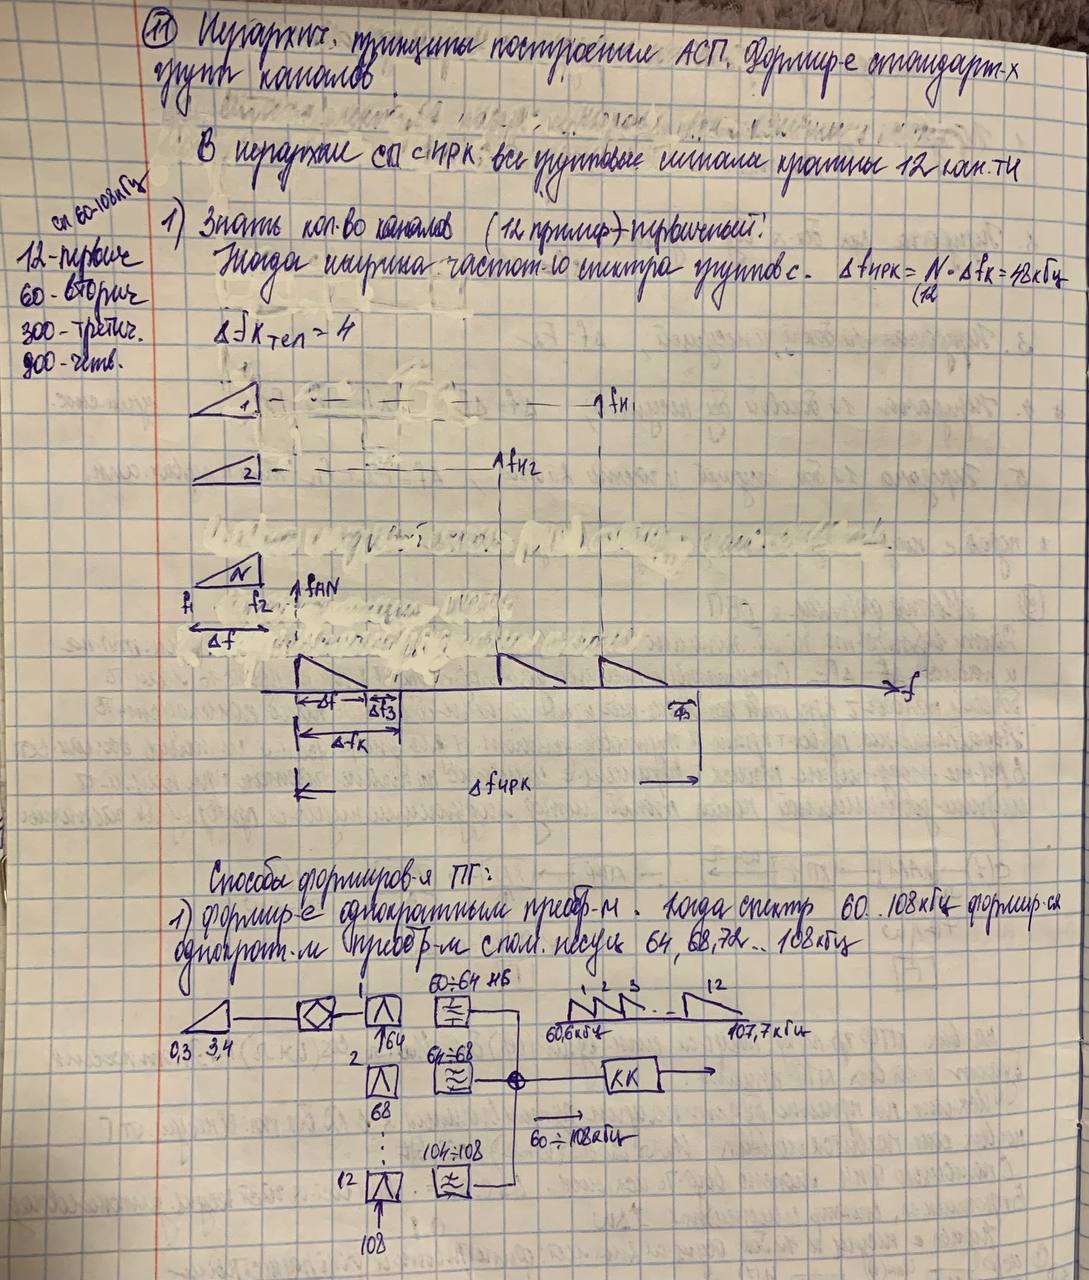 11 Иерархич. принципы построения АСП. Формир-е стандарт-х
групп каналов.
В иерархии СП с ЧРК все групповые сигналы кратны 12 кан.ТЧ
СП 60-108кГц
12-первич
60-вторич
300-третич.
900-четв.
1) Знать кол-во каналов (12 пример)-первичный!
Тогда ширина частот-го спектра группов с. ΔfЧРК = N · Δfк = 48кГц
(12
Δfк тел = 4
1 fн1
2 fн2
N
fнN
f1 f2
Δf
Δf Δfз f
Δfз
Δfк
ΔfЧРК
Способы формиров-я ПГ:
1) формир-е однократным преобр-м. Когда спектр 60..108кГц формир-ся
однократ-м преобр-м с пом. несущ 64, 68, 72 .. 108кГц
60÷64 НБ
1 1 2 3 ... 12
0,3 3,4 64 60,6кГц 107,7кГц
2 64÷68
68 КК
60÷108кГц
104÷108
12
108